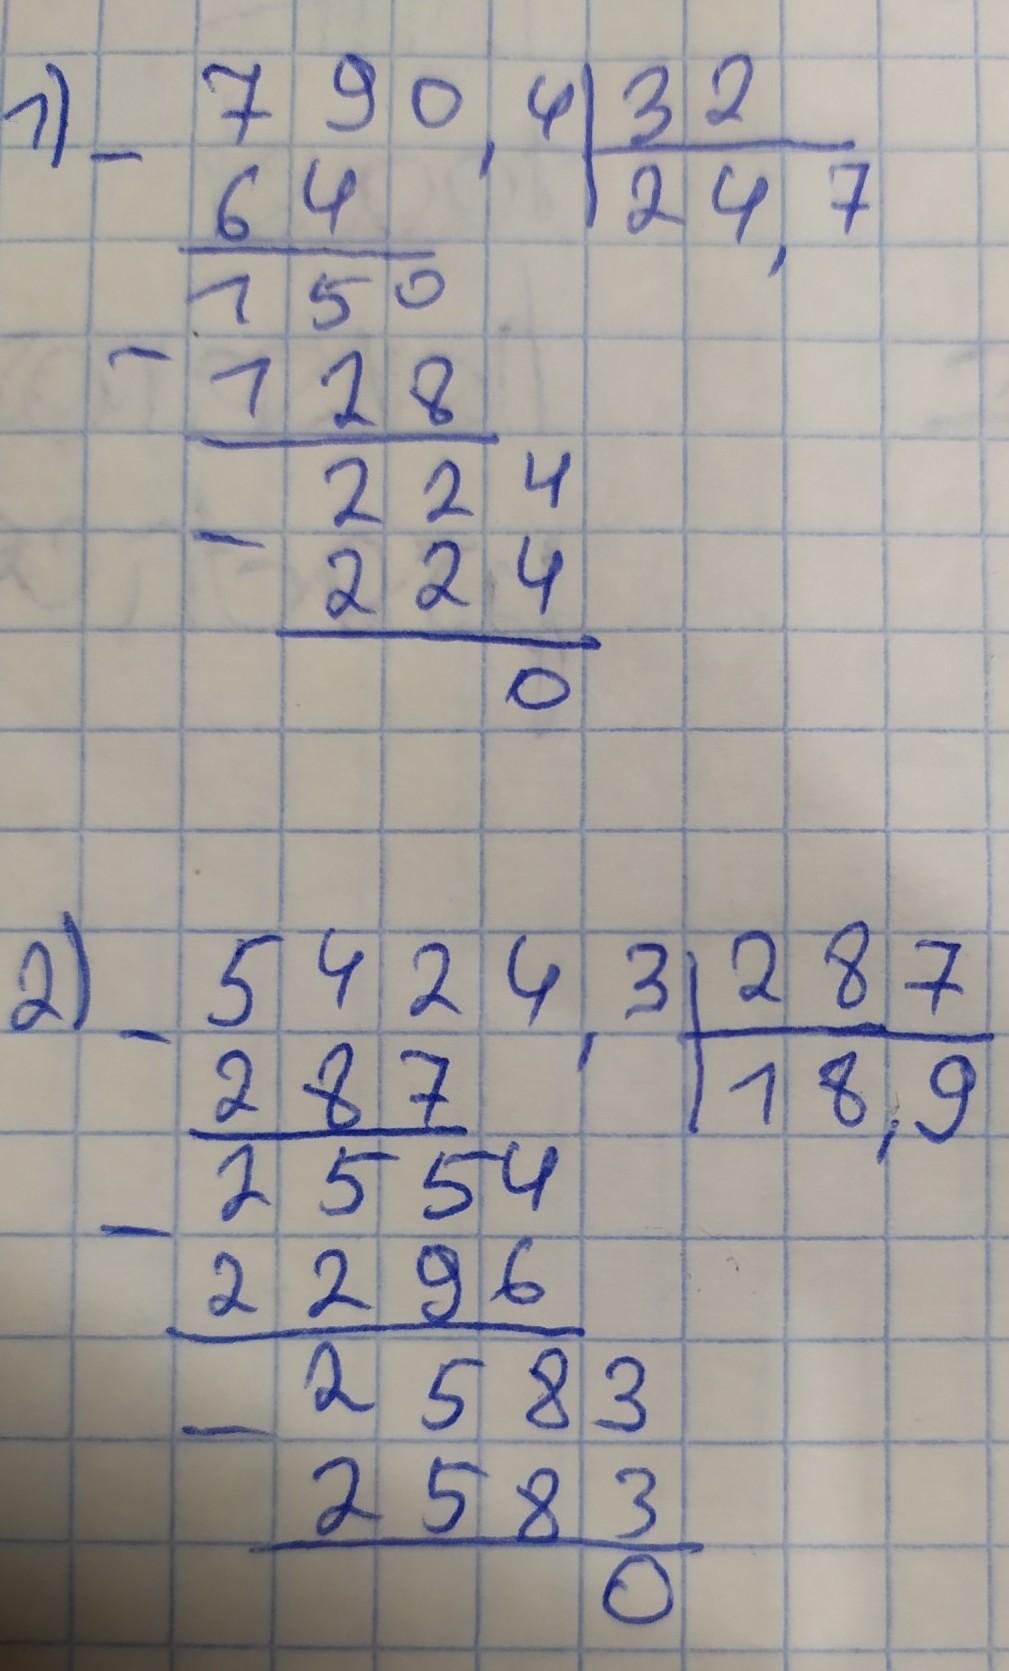 1) - 790,4 | 32
64 | 24,7
150
- 128
224
- 224
0
2) - 5424,3 | 287
287 | 18,9
2554
- 2296
2583
- 2583
0